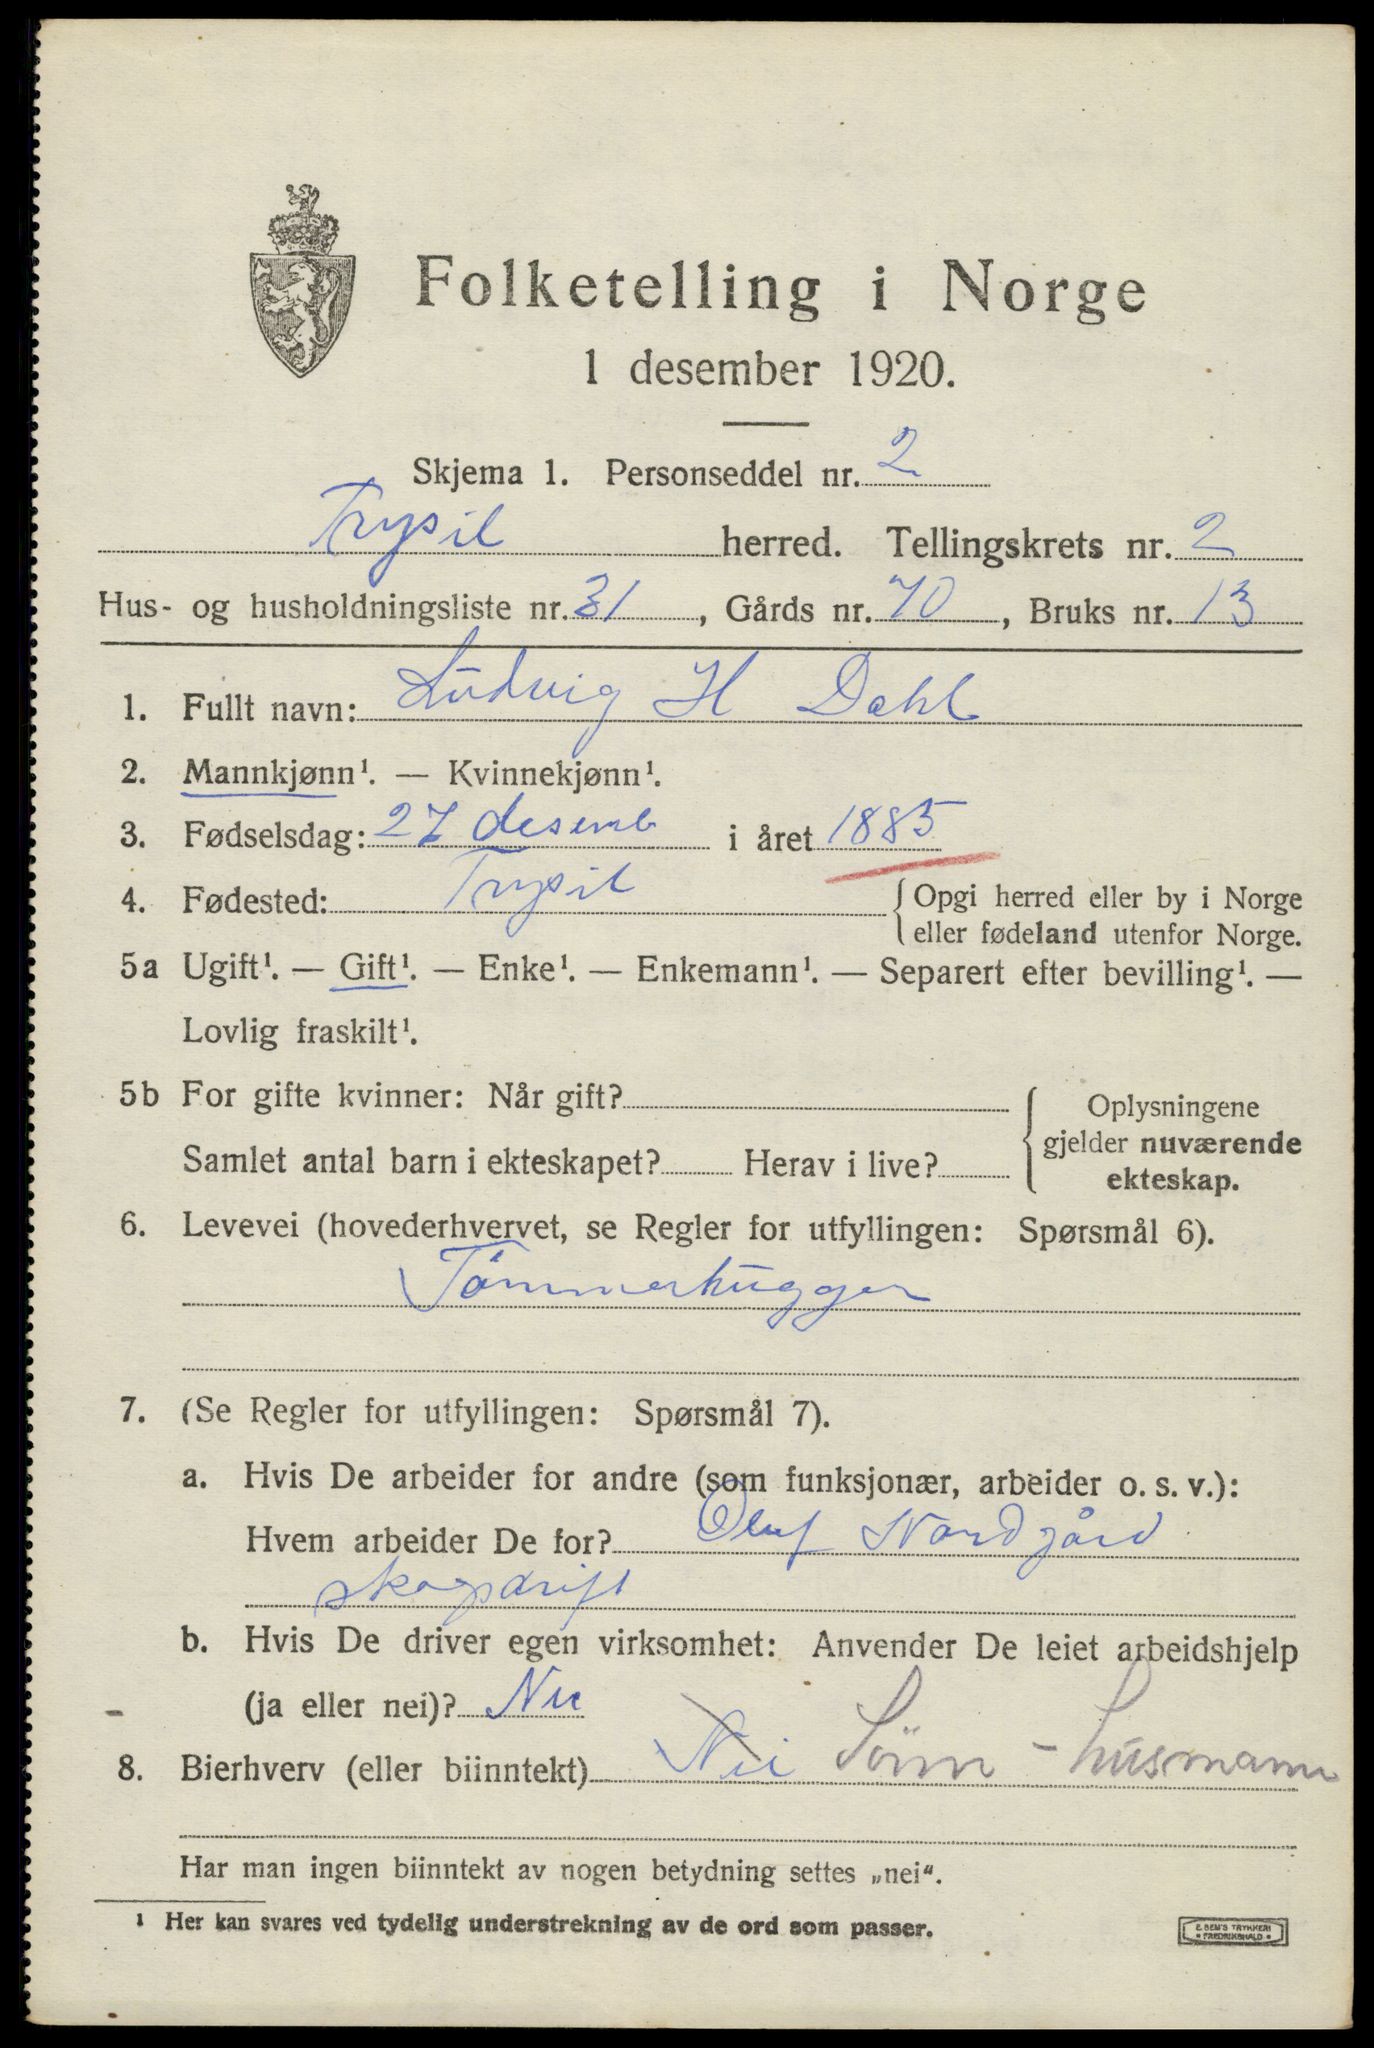 Folketelling i Norge
1 desember 1920.
Skjema 1. Personseddel nr. 2
Trysil herred. Tellingskrets nr. 2
Hus- og husholdningsliste nr. 31, Gårds nr. 70, Bruks nr. 13
1. Fullt navn: Ludvig H Dahl
2. Mannkjønn¹. — Kvinnekjønn¹.
3. Fødselsdag: 27 desemb i året 1885
4. Fødested: Trysil { Opgi herred eller by i Norge
eller fødeland utenfor Norge.
5a Ugift¹. — Gift¹. — Enke¹. — Enkemann¹. — Separert efter bevilling¹. —
Lovlig fraskilt¹.
5b For gifte kvinner: Når gift?
Samlet antal barn i ekteskapet? Herav i live?
{ Oplysningene
gjelder nuværende
ekteskap.
6. Levevei (hovederhvervet, se Regler for utfyllingen: Spørsmål 6).
Tömmerhugger
7. (Se Regler for utfyllingen: Spørsmål 7).
a. Hvis De arbeider for andre (som funksjonær, arbeider o. s. v.):
Hvem arbeider De for? Oluf Nordgård
skogsdrift
b. Hvis De driver egen virksomhet: Anvender De leiet arbeidshjelp
(ja eller nei)? Nei
8. Bierhverv (eller biinntekt) Nei Sönn - husmann
Har man ingen biinntekt av nogen betydning settes „nei“.
¹ Her kan svares ved tydelig understrekning av de ord som passer.
E. SEM'S TRYKKERI
• FREDRIKSHALD •